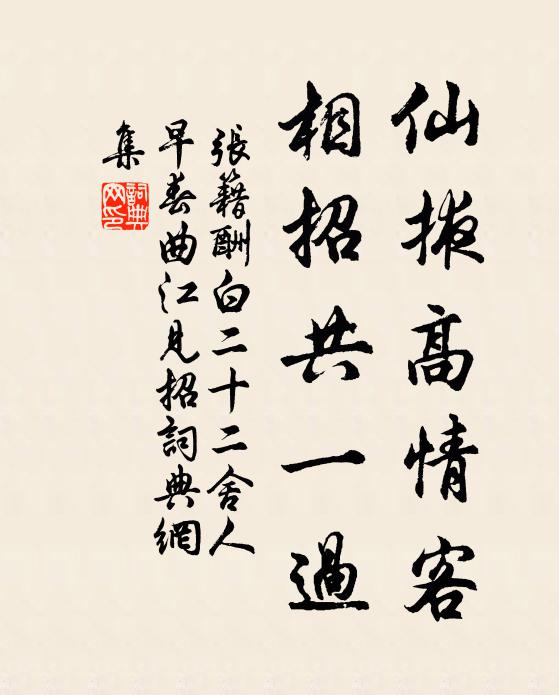 仙掖高情客
相招共一過
張籍酬白二十二舍人
早春曲江見招詞典網
集
詞典
网印